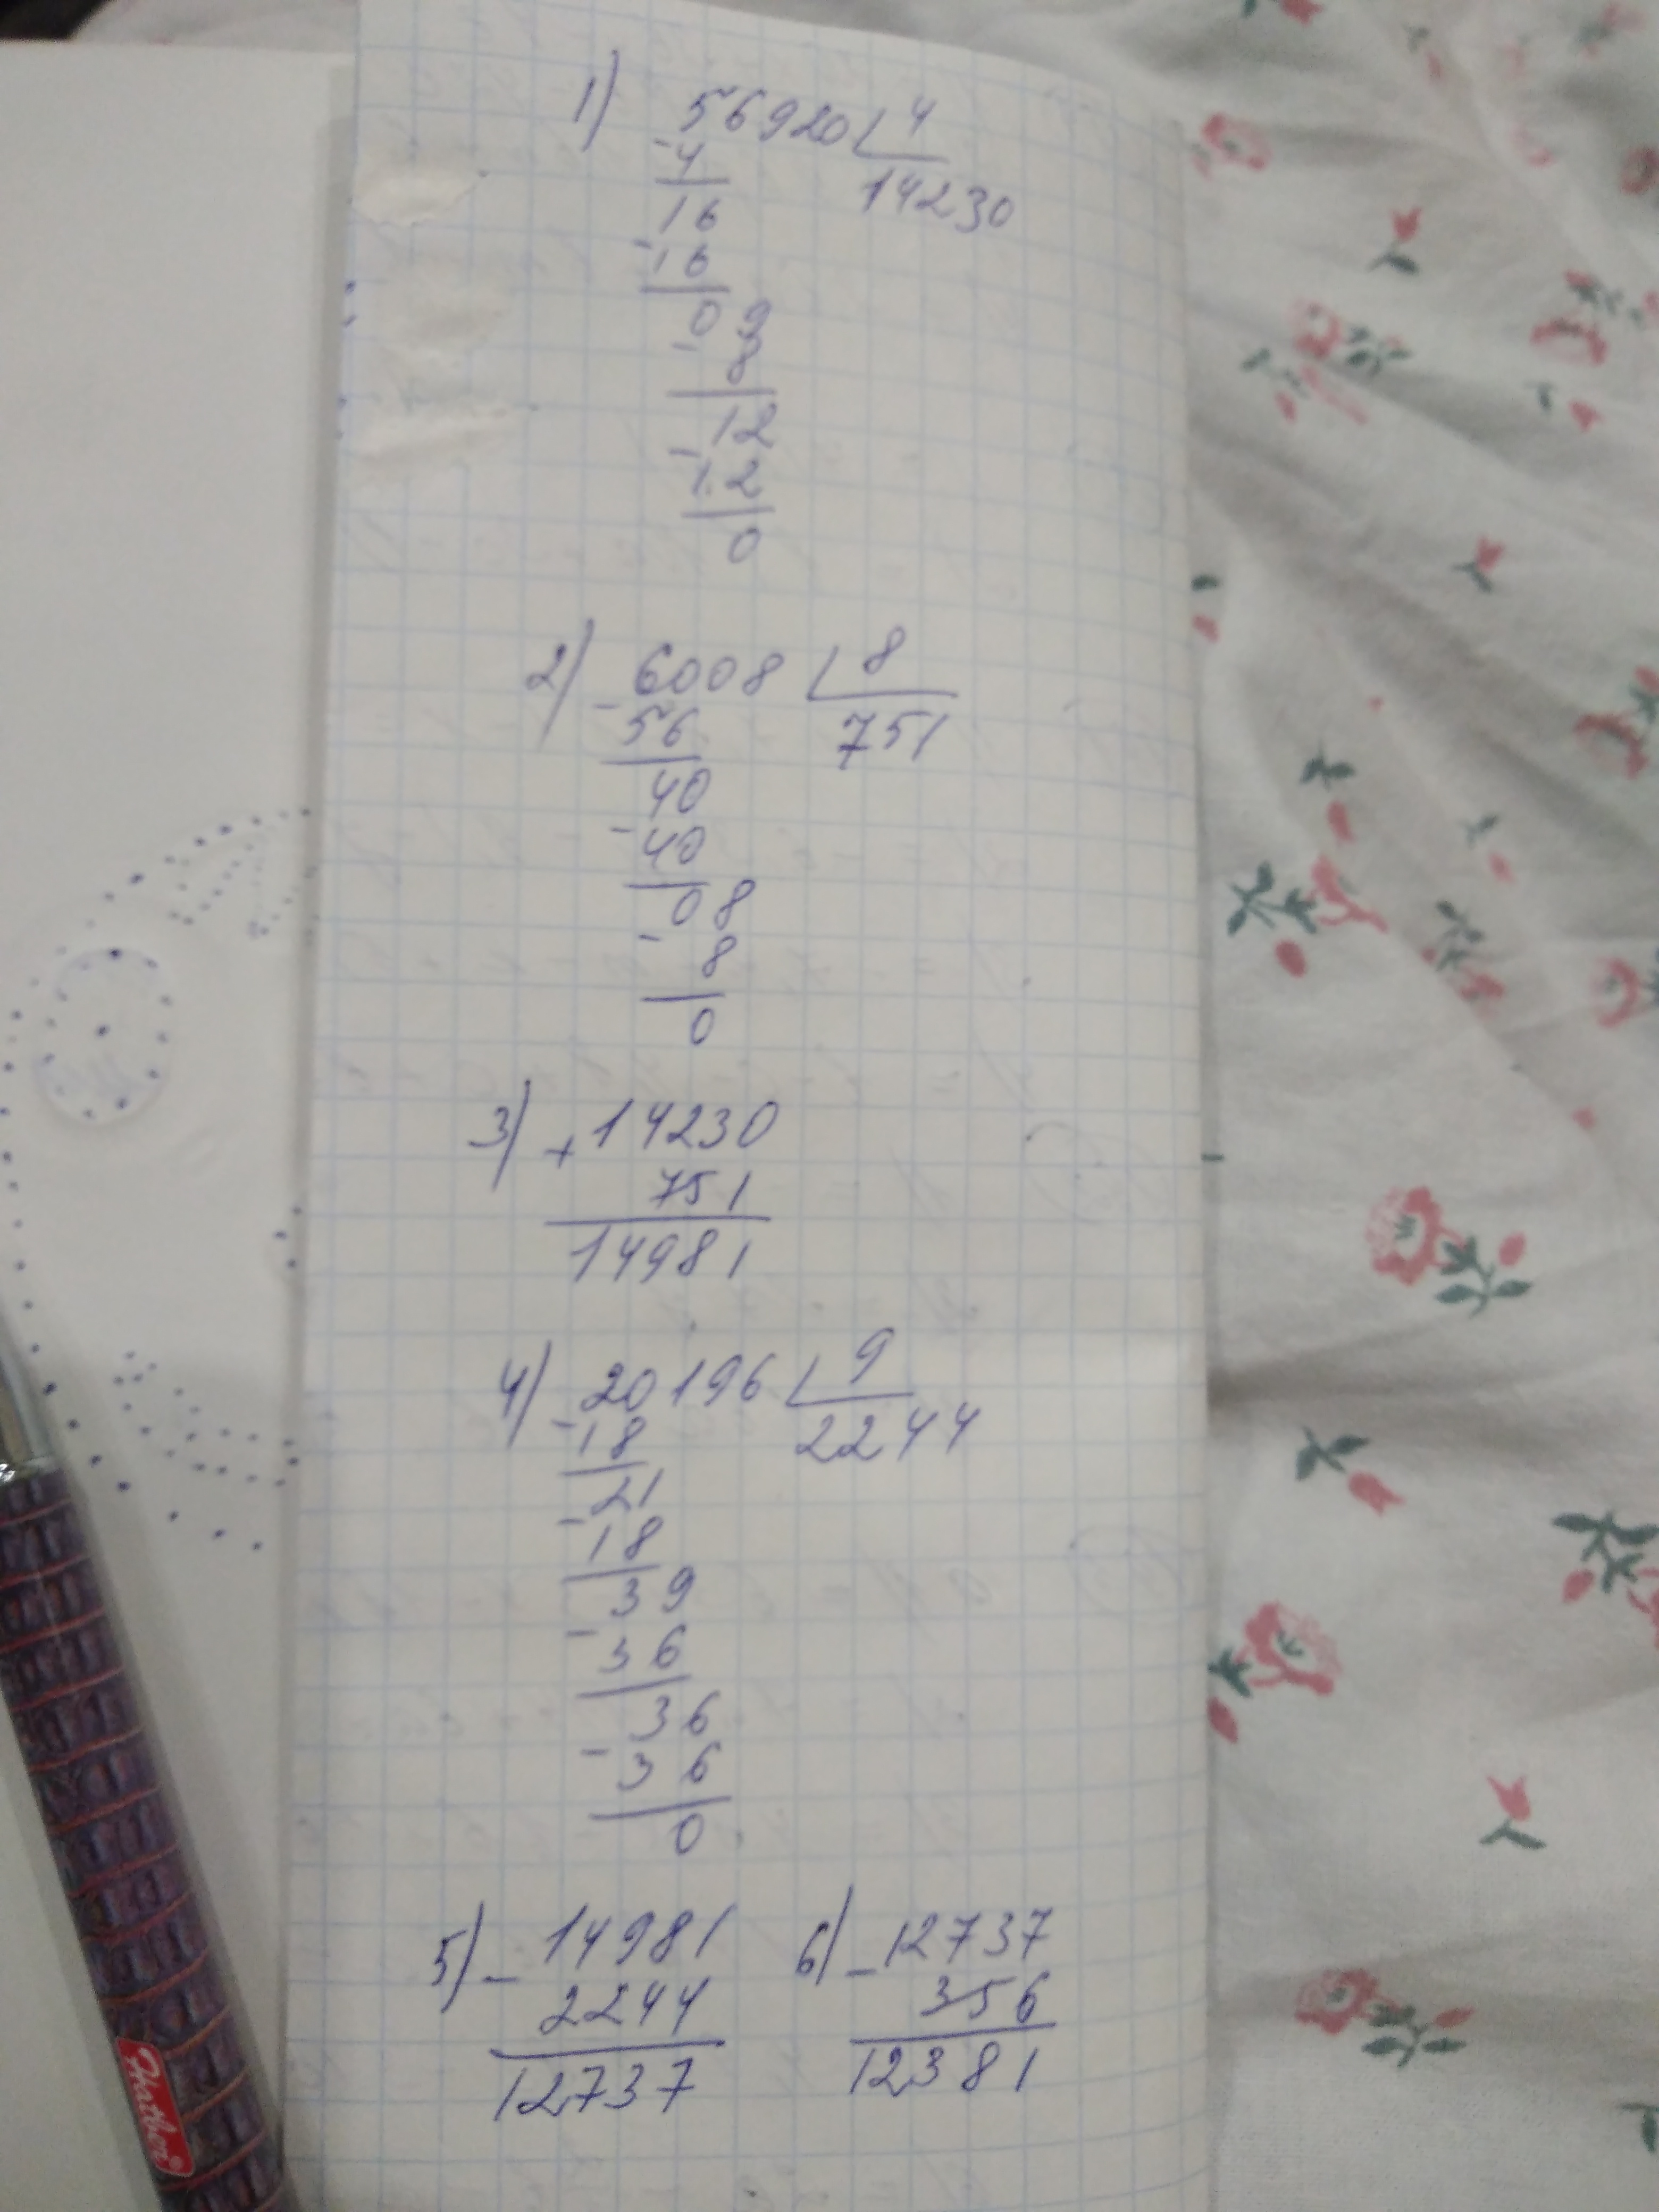 1) 56920 4
- 4 14230
16
- 16
09
- 8
12
- 12
0
2) - 6008 8
56 751
40
- 40
08
- 8
0
3) + 14230
751
14981
4) - 20196 9
18 2244
21
- 18
39
- 36
36
- 36
0
5) - 14981
2244
12737
6) - 12737
356
12381
Hatber®